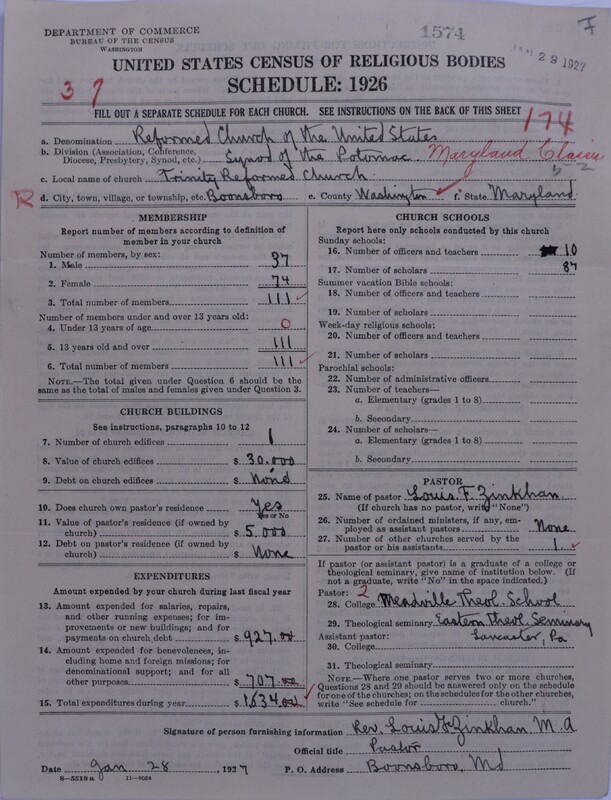 DEPARTMENT OF COMMERCE
BUREAU OF THE CENSUS
WASHINGTON
1574
29 1927
UNITED STATES CENSUS OF RELIGIOUS BODIES
SCHEDULE: 1926
37
FILL OUT A SEPARATE SCHEDULE FOR EACH CHURCH. SEE INSTRUCTIONS ON THE BACK OF THIS SHEET
174
a. Denomination Reformed Church of the United States
b. Division (Association, Conference, Diocese, Presbytery, Synod, etc.) Synod of the Potomac Maryland Classis
c. Local name of church Trinity Reformed Church
R d. City, town, village, or township, etc. Boonsboro e. County Washington f. State Maryland
MEMBERSHIP
Report number of members according to definition of
member in your church
Number of members, by sex:
1. Male 37
2. Female 74
3. Total number of members 111
Number of members under and over 13 years old:
4. Under 13 years of age 0
5. 13 years old and over 111
6. Total number of members 111
NOTE.—The total given under Question 6 should be the
same as the total of males and females given under Question 3.
CHURCH BUILDINGS
See instructions, paragraphs 10 to 12
7. Number of church edifices 1
8. Value of church edifices $ 30.000
9. Debt on church edifices $ None
10. Does church own pastor's residence Yes
Yes or No
11. Value of pastor's residence (if owned by
church) $ 5.000
12. Debt on pastor's residence (if owned by
church) $ None
EXPENDITURES
Amount expended by your church during last fiscal year
13. Amount expended for salaries, repairs,
and other running expenses; for im-
provements or new buildings; and for
payments on church debt $ 927.00
14. Amount expended for benevolences, in-
cluding home and foreign missions; for
denominational support; and for all
other purposes $ 707.00
15. Total expenditures during year $ 1,634.00
CHURCH SCHOOLS
Report here only schools conducted by this church
Sunday schools:
16. Number of officers and teachers 10
17. Number of scholars 87
Summer vacation Bible schools:
18. Number of officers and teachers
19. Number of scholars
Week-day religious schools:
20. Number of officers and teachers
21. Number of scholars
Parochial schools:
22. Number of administrative officers
23. Number of teachers—
a. Elementary (grades 1 to 8)
b. Secondary
24. Number of scholars—
a. Elementary (grades 1 to 8)
b. Secondary
PASTOR
25. Name of pastor Louis F. Zinkhan
(If church has no pastor, write "None")
26. Number of ordained ministers, if any, em-
ployed as assistant pastors None
27. Number of other churches served by the
pastor or his assistants 1
If pastor (or assistant pastor) is a graduate of a college or
theological seminary, give name of institution below. (If
not a graduate, write "No" in the space indicated.)
Pastor: 2
28. College Meadville Theol. School
29. Theological seminary Eastern Theol. Seminary
Assistant pastor: Lancaster, Pa
30. College
31. Theological seminary
NOTE.—Where one pastor serves two or more churches,
Questions 28 and 29 should be answered only on the schedule
for one of the churches; on the schedules for the other churches,
write "See schedule for church."
Signature of person furnishing information Rev. Louis F. Zinkhan, M.A
Official title Pastor
Date Jan 28, 1927 P. O. Address Boonsboro, Md
8—5518a 11—9024